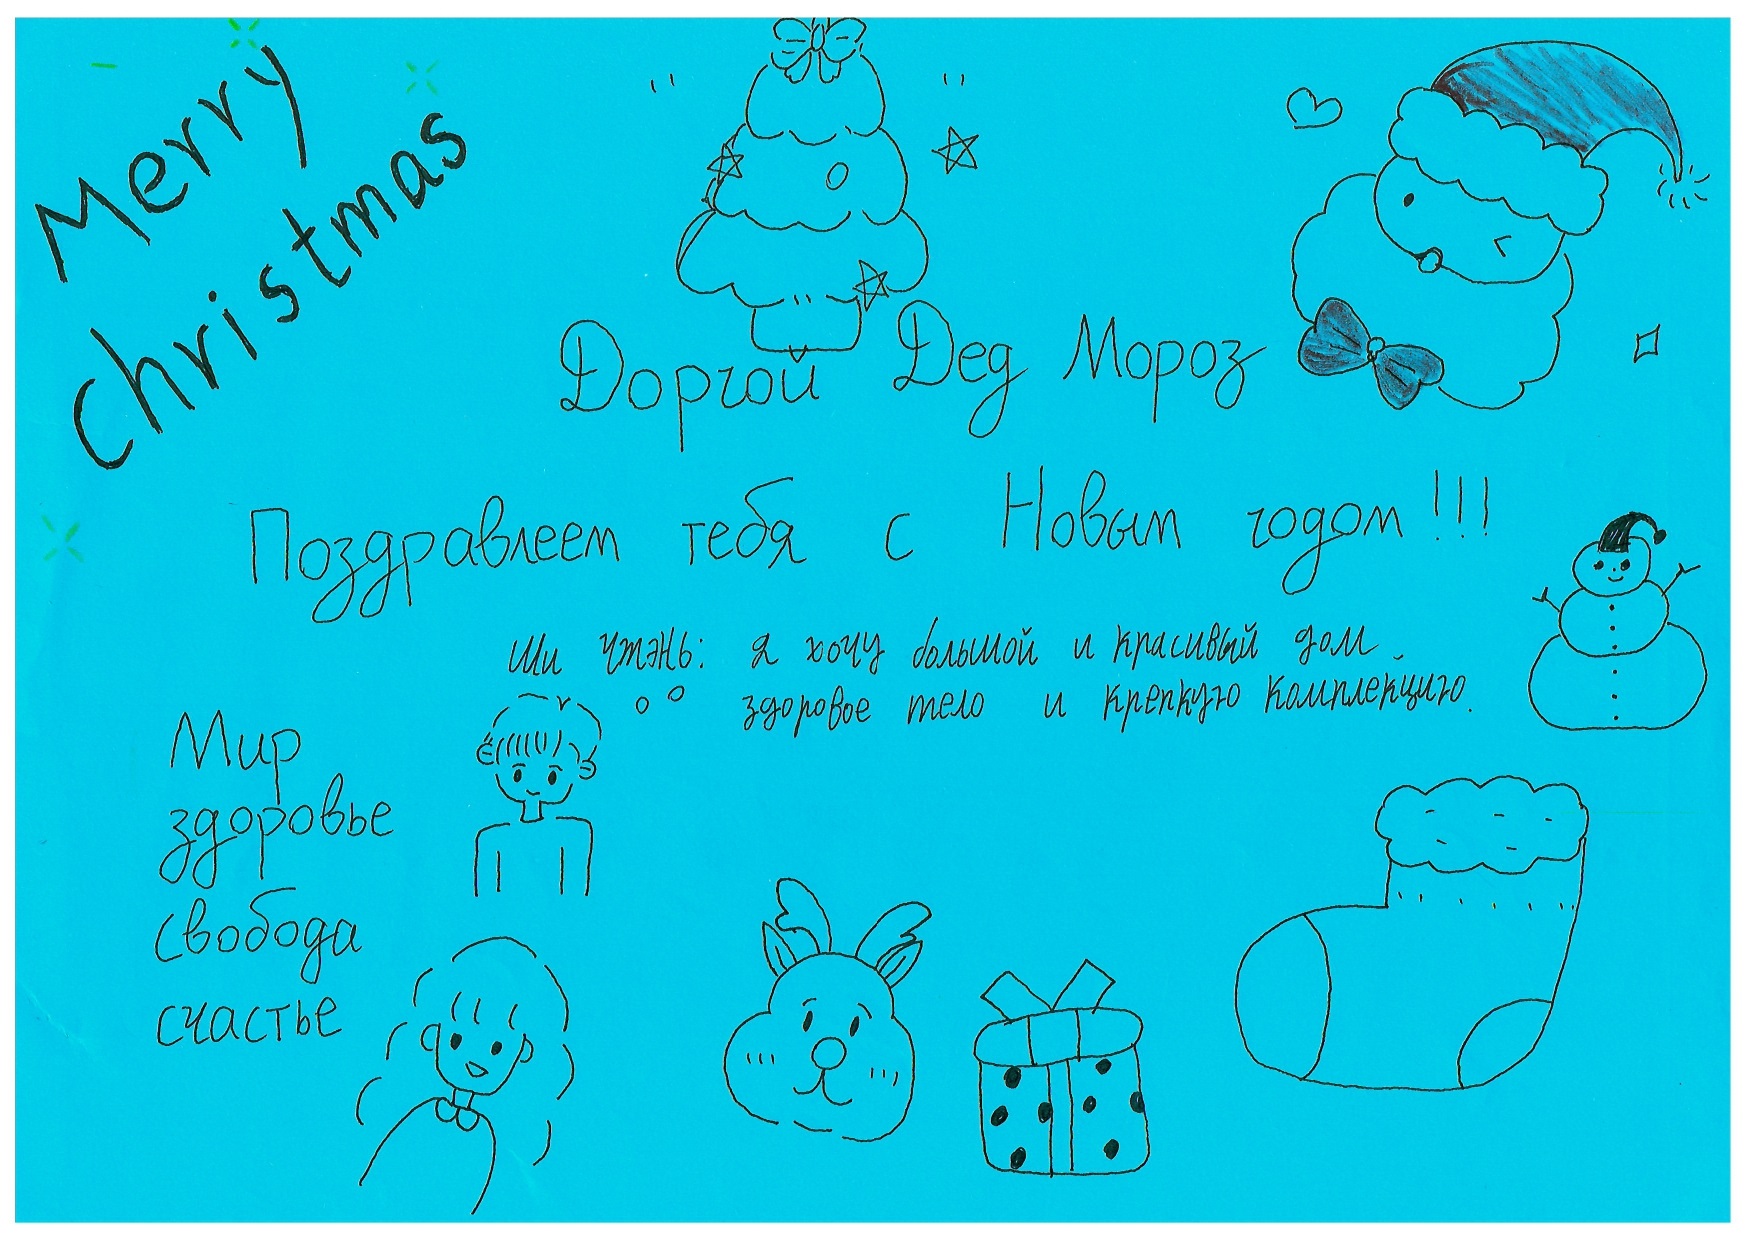 Merry
christmas
Доргой Дед Мороз
Поздравлеем тебя с Новым годом!!!
Ши Чтэнь: я хочу большой и красивый дом
здоровое тело и крепкую комплекцию.
Мир
здоровье
свобода
счастье